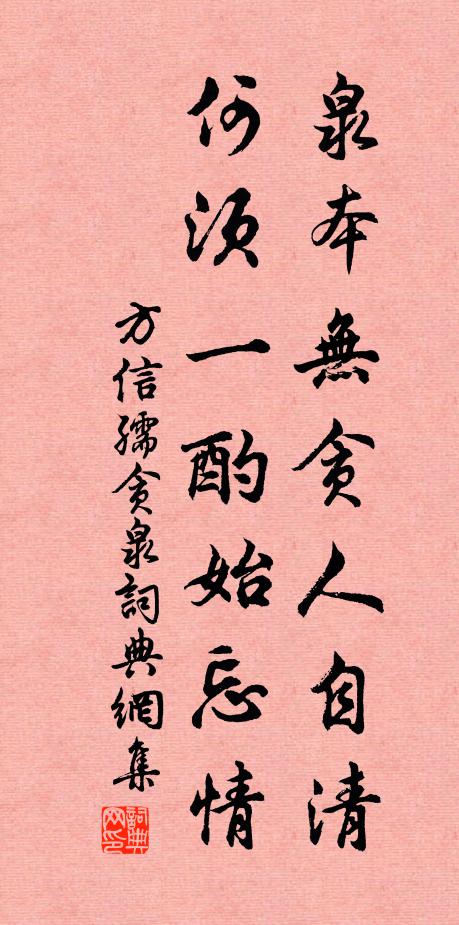 泉本無貪人自清
何須一酌始忘情
方信孺貪泉詞典網集
詞典网印